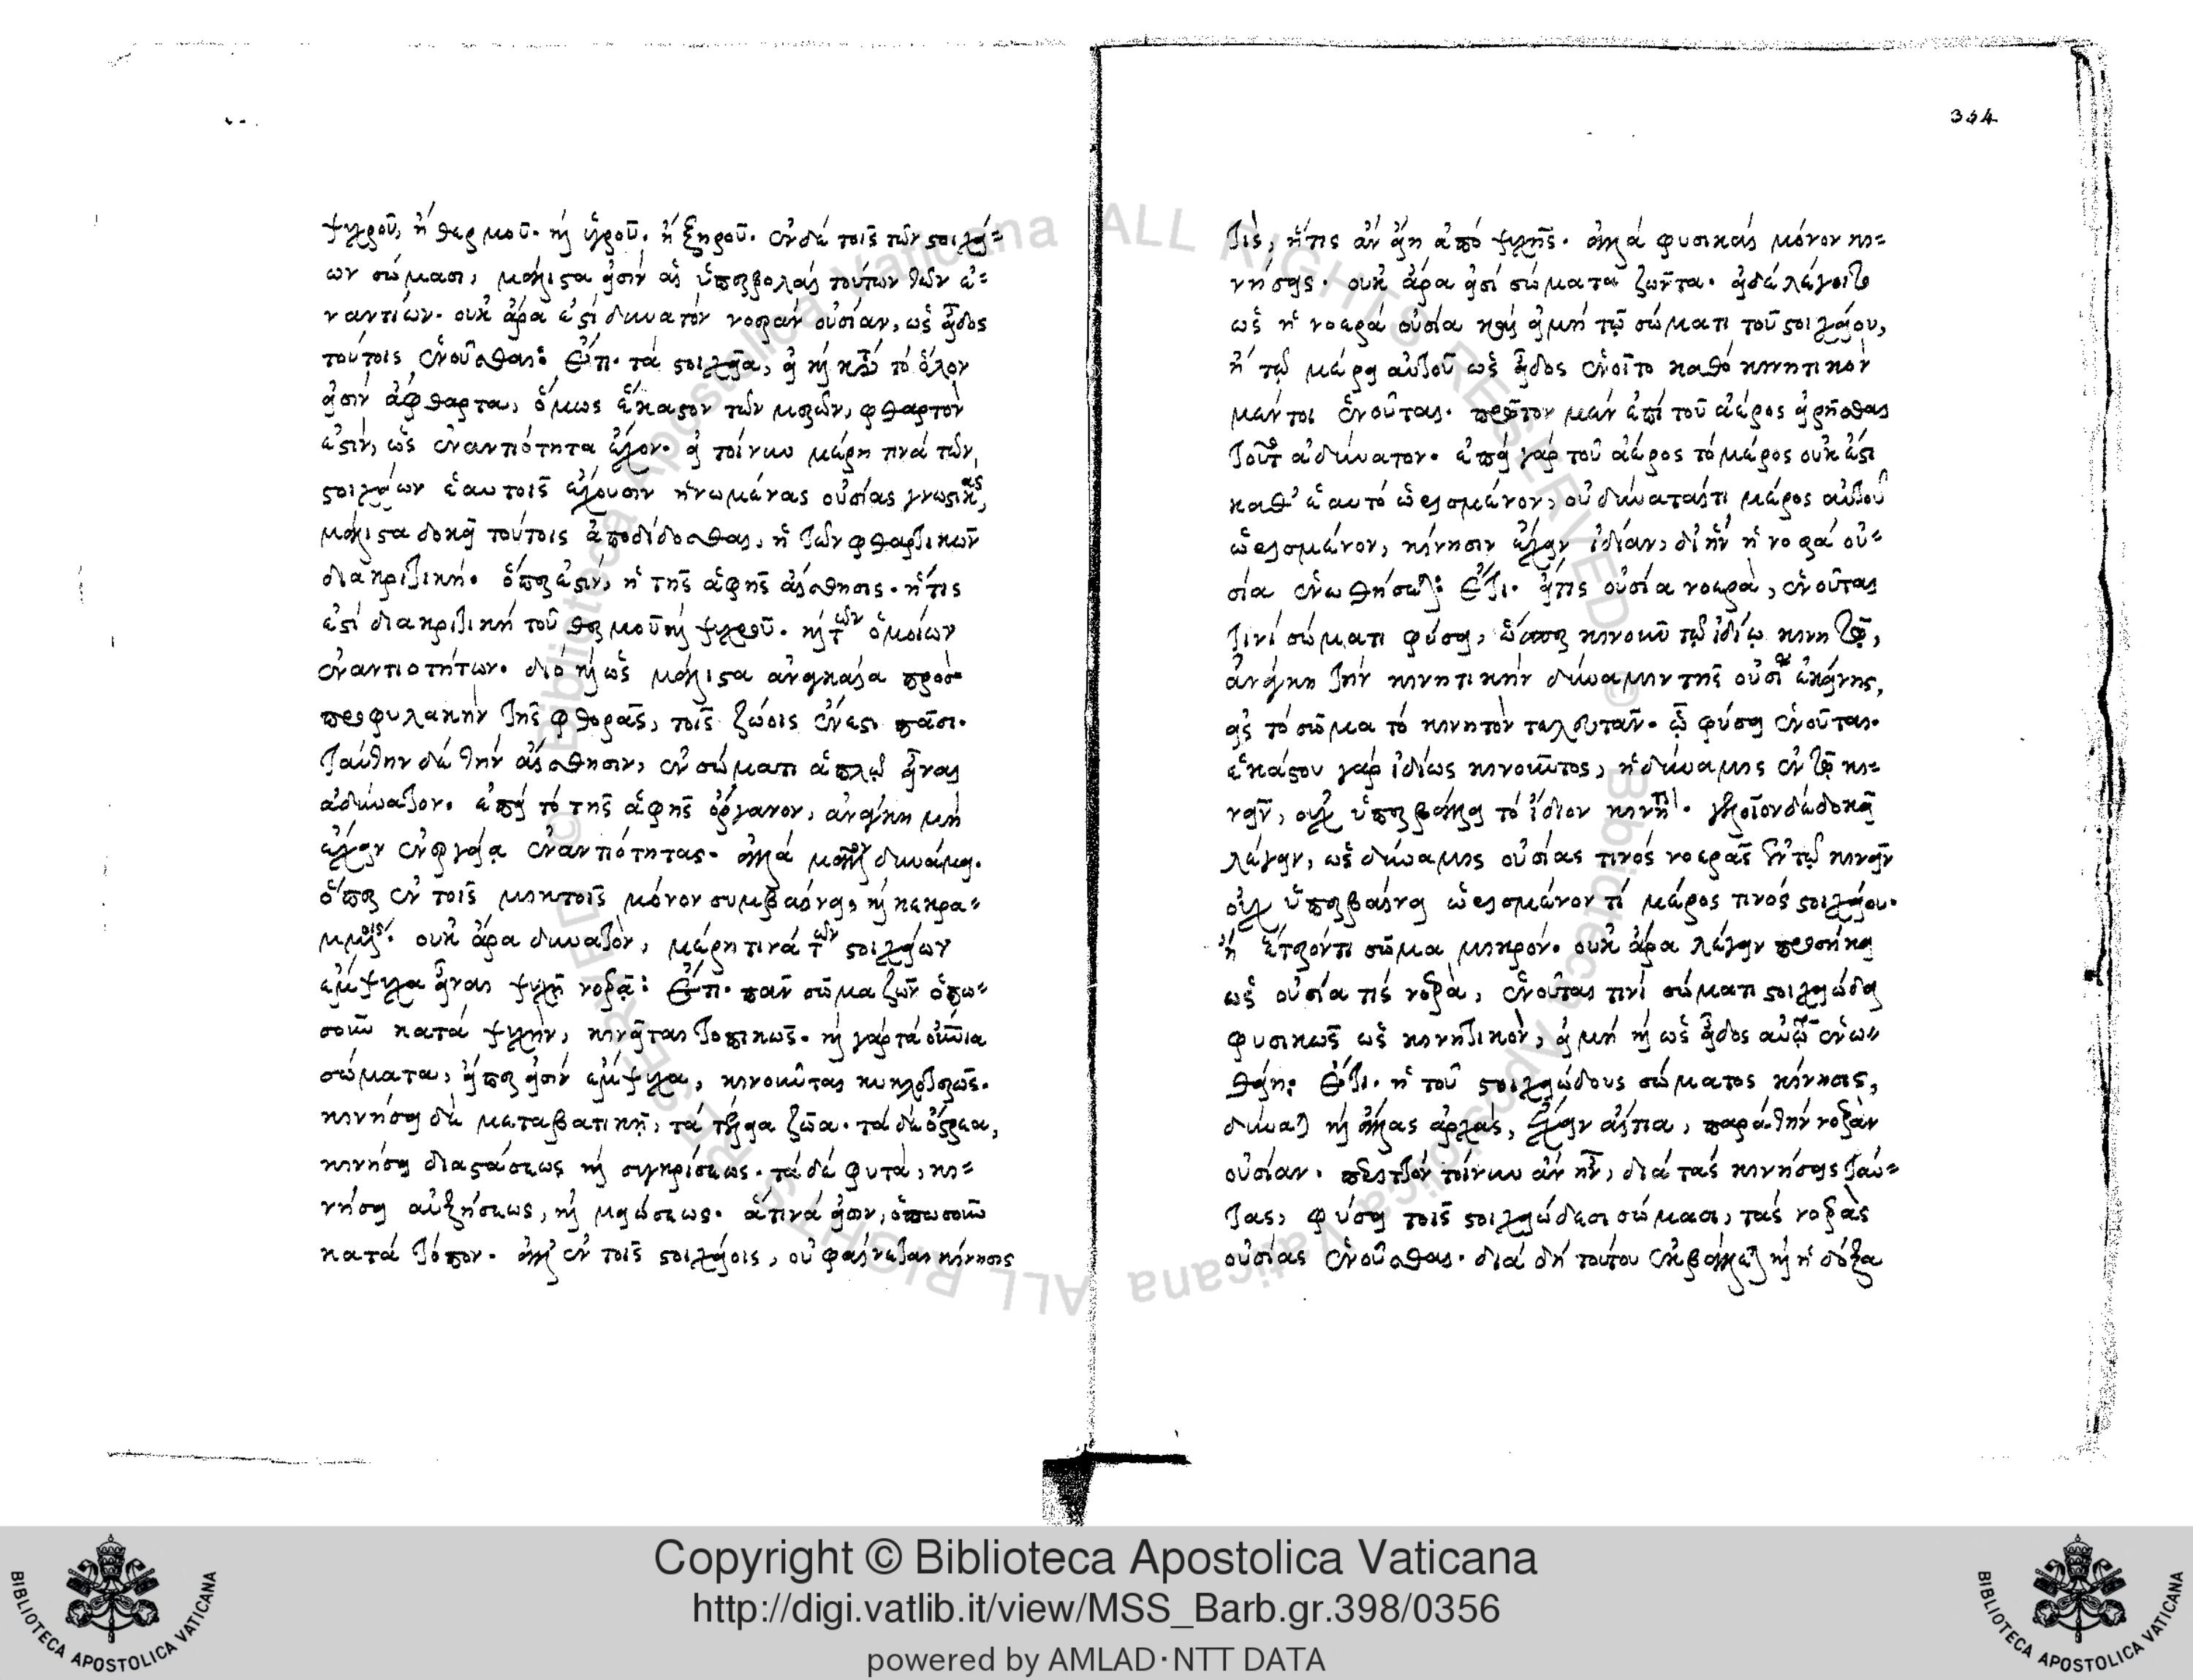 ψυχροῦ, ἢ θερμοῦ· καὶ ὑγροῦ, ἢ ξηροῦ. ἐν δὲ τοῖς τῶν στοιχεί-
ων σώμασι, μάλιστα εἰσὶν αἱ ὑπερβολαὶ τούτων τῶν ἐ-
ναντίων. οὐκ ἄρα ἐστὶ δυνατὸν νοερὰν οὐσίαν, ὡς εἶδος
τούτοις ἑνοῦσθαι: Ἔτι. τὰ στοιχεῖα, εἰ καὶ κατὰ τὸ ὅλον
εἰσὶν ἄφθαρτα, ὅμως ἕκαστον τῶν μερῶν, φθαρτὸν
ἐστὶν, ὡς ἐναντιότητα ἔχον. εἰ τοίνυν μέρη τινὰ τῶν
στοιχείων ἑαυτοῖς ἔχουσιν ἡνωμένας οὐσίας γνωστικὰς,
μάλιστα δοκεῖ τούτοις ἀποδίδοσθαι, ἡ τῶν φθαρτικῶν
διακριτική. ὅπερ ἐστὶν, ἡ τῆς ἁφῆς αἴσθησις. ἥτις
ἐστὶ διακριτικὴ τοῦ θερμοῦ καὶ ψυχροῦ. καὶ τῶν ὁμοίων
ἐναντιοτήτων. διὸ καὶ ὡς μάλιστα ἀναγκαία πρὸς
προφυλακὴν τῆς φθορᾶς, τοῖς ζώοις ἔνεστι πᾶσι.
Ταύτην δὲ τὴν αἴσθησιν, ἐν σώματι ἁπλῷ εἶναι
ἀδύνατον. ἐπεὶ τὸ τῆς ἁφῆς ὄργανον, ἀνάγκη μὴ
ἔχειν ἐνεργείᾳ ἐναντιότητας. ἀλλὰ δυνάμει.
ὅπερ ἐν τοῖς μικτοῖς μόνον συμβαίνει, καὶ κεκρα-
μμένοις. οὐκ ἄρα δυνατὸν, μέρη τινὰ τῶν στοιχείων
ἔμψυχα εἶναι ψυχῇ νοερᾷ: Ἔτι. πᾶν σῶμα ζῶν ὁπω-
σοῦν κατὰ ψυχὴν, κινεῖται τοπικῶς. καὶ γὰρ τὰ οὐράνια
σώματα, εἴπερ εἰσὶν ἔμψυχα, κινοῦνται κυκλοτερῶς.
κινήσει δὲ μεταβατικῇ, τὰ τέλεια ζῶα. τὰ δὲ ὄστρεα,
κινήσει διαστάσεως καὶ συγκρίσεως. τὰ δὲ φυτὰ, κι-
νήσει αὐξήσεως, καὶ μειώσεως. ἅτινά εἰσιν, ὁπωσοῦν
κατὰ τόπον. ἀλλ' ἐν τοῖς στοιχείοις, οὐ φαίνεται κίνησις
334
τὶς, ἥτις ἂν εἴη ἀπὸ ψυχῆς. ἀλλὰ φυσικαὶ μόνον κι-
νήσεις. οὐκ ἄρα εἰσὶ σώματα ζῶντα. εἰ δὲ λέγοιτο
ὡς ἡ νοερὰ οὐσία καὶ εἰ μὴ τῷ σώματι τοῦ στοιχείου,
ἢ τῷ μέρει αὐτοῦ ὡς εἶδος ἑνοῖτο καθὸ κινητικὸν
μέντοι ἑνοῦται. πρῶτον μὲν ἐπὶ τοῦ ἀέρος εἰρῆσθαι
τοῦτ' ἀδύνατον. ἐπεὶ γὰρ τοῦ ἀέρος τὸ μέρος οὐκ ἔστι
καθ' ἑαυτὸ ὡρισμένον, οὐ δύναταί τι μέρος αὐτοῦ
ὡρισμένον, κίνησιν ἔχειν ἰδίαν, δι' ἣν ἡ νοερὰ οὐ-
σία ἑνωθήσεται: Ἔτι. εἴτις οὐσία νοερὰ, ἑνοῦται
τινὶ σώματι φύσει, ὥσπερ κινοῦν τῷ ἰδίῳ κινητῷ,
ἀνάγκη τὴν κινητικὴν δύναμιν τῆς οὐσίας ἐκείνης,
εἰς τὸ σῶμα τὸ κινητὸν τελευτᾶν. ᾧ φύσει ἑνοῦται.
ἑκάστου γὰρ ἰδίως κινοῦντος, ἡ δύναμις ἐν τῷ κι-
νεῖν, οὐχ ὑπερβάλλει τὸ ἴδιον κινητόν. γελοῖον δὲ δοκεῖ
λέγειν, ὡς δύναμις οὐσίας τινὸς νοερᾶς ἐν τῷ κινεῖν
οὐχ ὑπερβαίνει ὡρισμένον τι μέρος τινὸς στοιχείου.
ἢ ἕτερόν τι σῶμα μικρόν. οὐκ ἄρα λέγειν προσήκει
ὡς οὐσία τὶς νοερὰ, ἑνοῦται τινὶ σώματι στοιχειώδει
φυσικῶς ὡς κινητικὸν, εἰ μὴ καὶ ὡς εἶδος αὐτῷ ἑνω-
θείη: Ἔτι. ἡ τοῦ στοιχειώδους σώματος κίνησις,
δύναται καὶ ἄλλας ἀρχὰς, ἔχειν αἴτια, παρὰ τὴν νοερὰν
οὐσίαν. περιττὸν τοίνυν ἂν ἦν, διὰ τὰς κινήσεις ταύ-
τας, φύσει τοῖς στοιχειώδεσι σώμασι, τὰς νοερὰς
οὐσίας ἑνοῦσθαι. διὰ δὴ τούτου ἐκβάλλεται καὶ ἡ δόξα
Copyright © Biblioteca Apostolica Vaticana
http://digi.vatlib.it/view/MSS_Barb.gr.398/0356
powered by AMLAD·NTT DATA
BIBLIOTECA APOSTOLICA VATICANA
BIBLIOTECA APOSTOLICA VATICANA
© Biblioteca Apostolica Vaticana ALL RIGHTS RESERVED
© Biblioteca Apostolica Vaticana ALL RIGHTS RESERVED